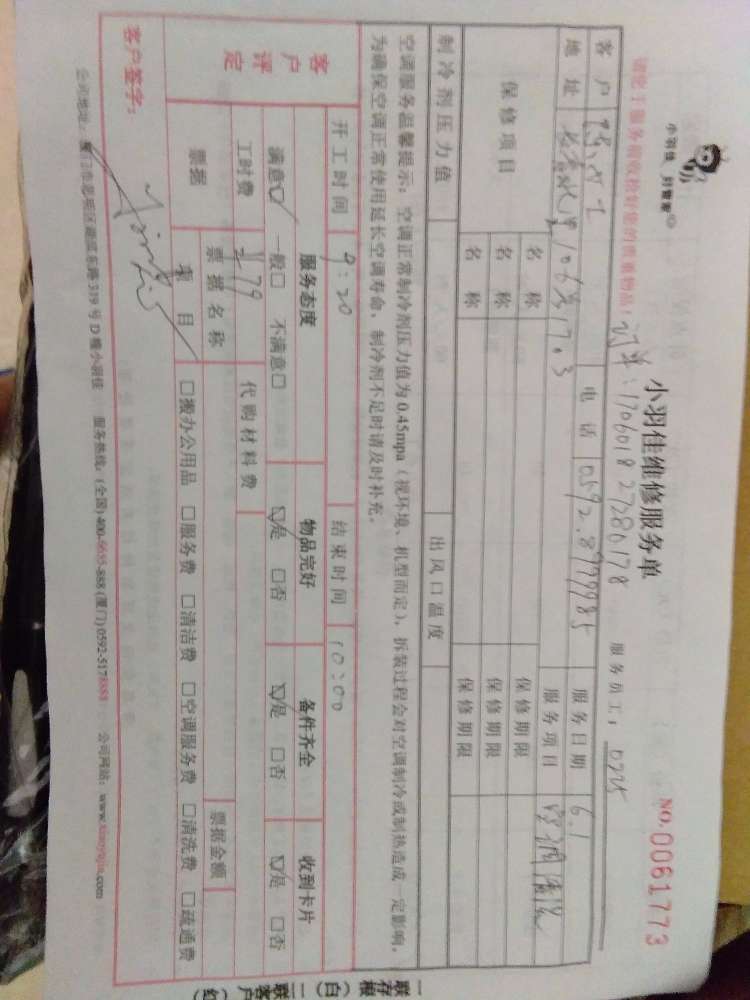 小羽佳 好管家
小羽佳维修服务单
NO.0061773
请您于服务前收拾好您的贵重物品!
订单:170601827280178
服务员工: 0225
客户
电话 0592.8799985
服务日期 6.1
地址
服务项目 空调清洗
保修项目
名称 保修期限
名称 保修期限
名称 保修期限
制冷剂压力值 出风口温度
空调服务温馨提示: 空调正常制冷剂压力值为0.45mpa(视环境、机型而定), 拆装过程会对空调制冷或制热造成一定影响,
为确保空调正常使用延长空调寿命, 制冷剂不足时请及时补充。
开工时间 9:20 结束时间 10:00
客户评定
服务态度 物品完好 备件齐全 收到卡片
满意☑ 一般□ 不满意□ ☑是 □否 ☑是 □否 ☑是 □否
工时费 ¥179 代购材料费
票据 票据名称 票据金额
项目 □搬办公用品 □服务费 □清洁费 □空调服务费 □清洗费 □疏通费
客户签字:
公司地址: 厦门市思明区湖滨东路319号D幢小羽佳 服务热线: (全国)400-5655-888 (厦门)0592-5178888 公司网站: www.xiaoyujia.com
一联存根(白) 二联客户(红)